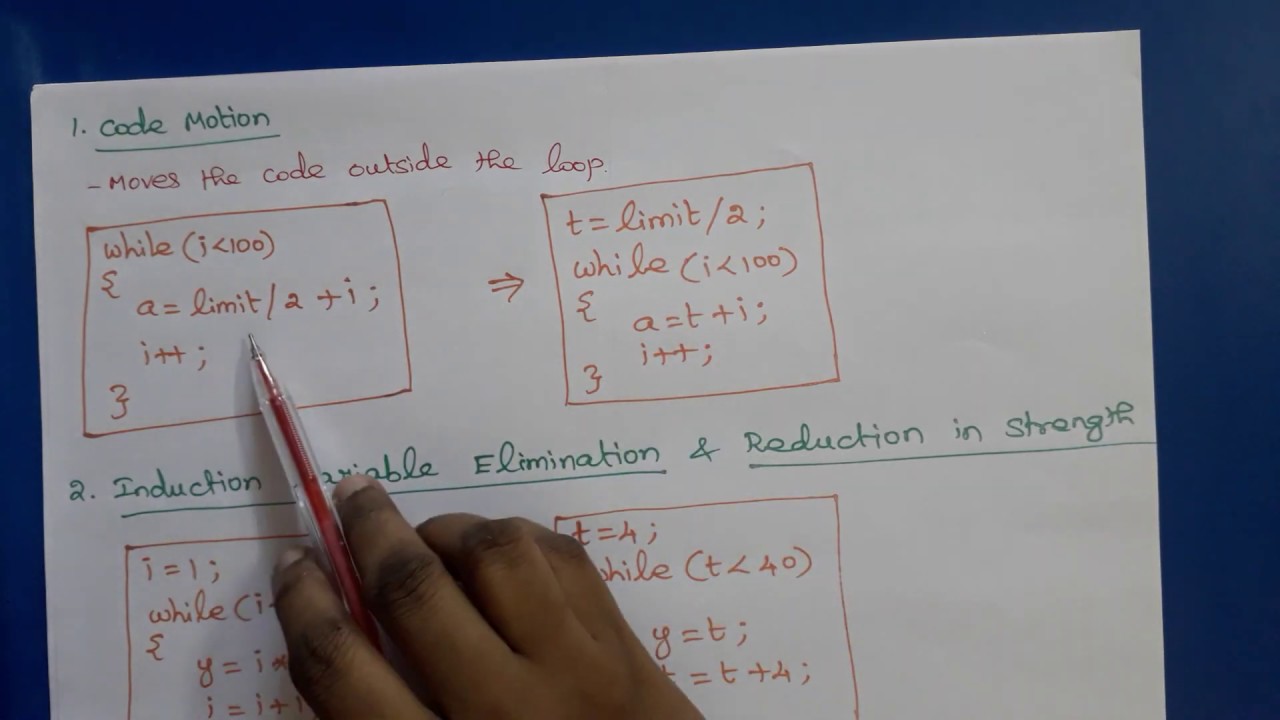 1. Code Motion
- Moves the code outside the loop.
while (i<100)
{
a = limit/2 + i ;
i++ ;
}
⇒
t = limit/2 ;
while (i<100)
{
a = t + i ;
i++ ;
}
2. Induction Variable Elimination & Reduction in Strength
i = 1 ;
while (i
{
y = i
i = i + 1
t = 4 ;
while (t < 40)
y = t ;
= t + 4 ;